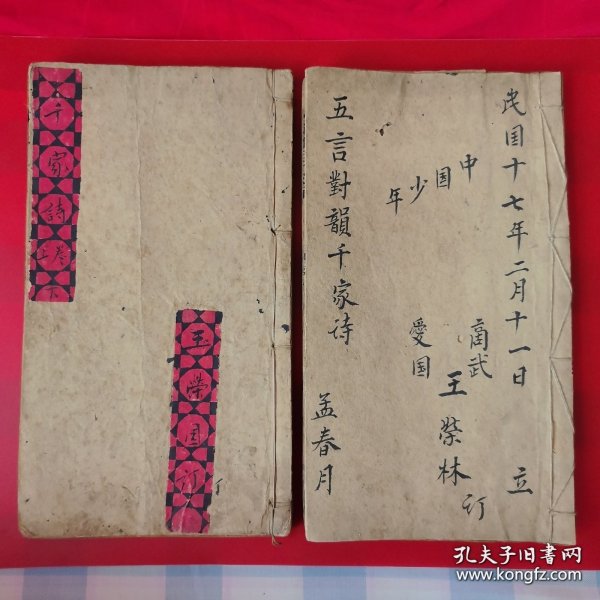 千家詩上卷下
玉榮国訂
民国十七年二月十一日 立
中国少年
商武
王榮林订
愛国
五言對韻千家诗 孟春月
孔夫子旧书网
www.kongfz.com